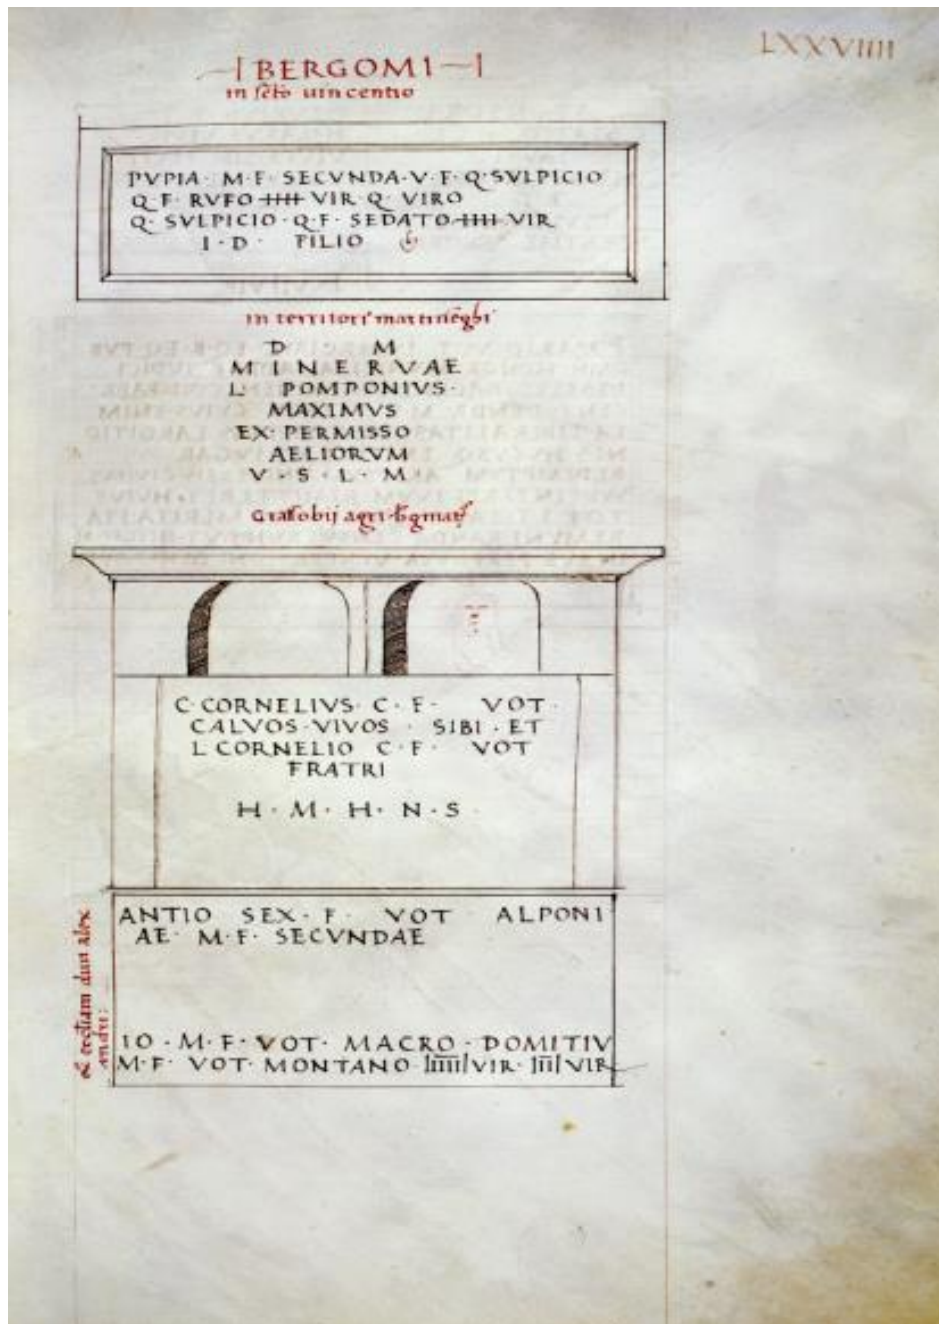 LXXVIIII
BERGOMI
in scto uincentio
PVPIA · M · F · SECVNDA · V · F · Q · SVLPICIO
Q · F · RVFO IIII VIR · Q · VIRO
Q · SVLPICIO · Q · F · SEDATO IIII VIR
I · D · FILIO
in territori martineghi
D M
MINERVAE
L · POMPONIVS ·
MAXIMVS
EX · PERMISSO
AELIORVM
V · S · L · M
agri
C · CORNELIVS · C · F · VOT ·
CALVOS · VIVOS · SIBI · ET
L CORNELIO C · F · VOT
FRATRI
H · M · H · N · S ·
ANTIO SEX · F · VOT ALPONI
AE · M · F · SECVNDAE
IO · M · F · VOT · MACRO · DOMITIV
M · F · VOT · MONTANO IIIIII VIR · III VIR
diui alex
andri: